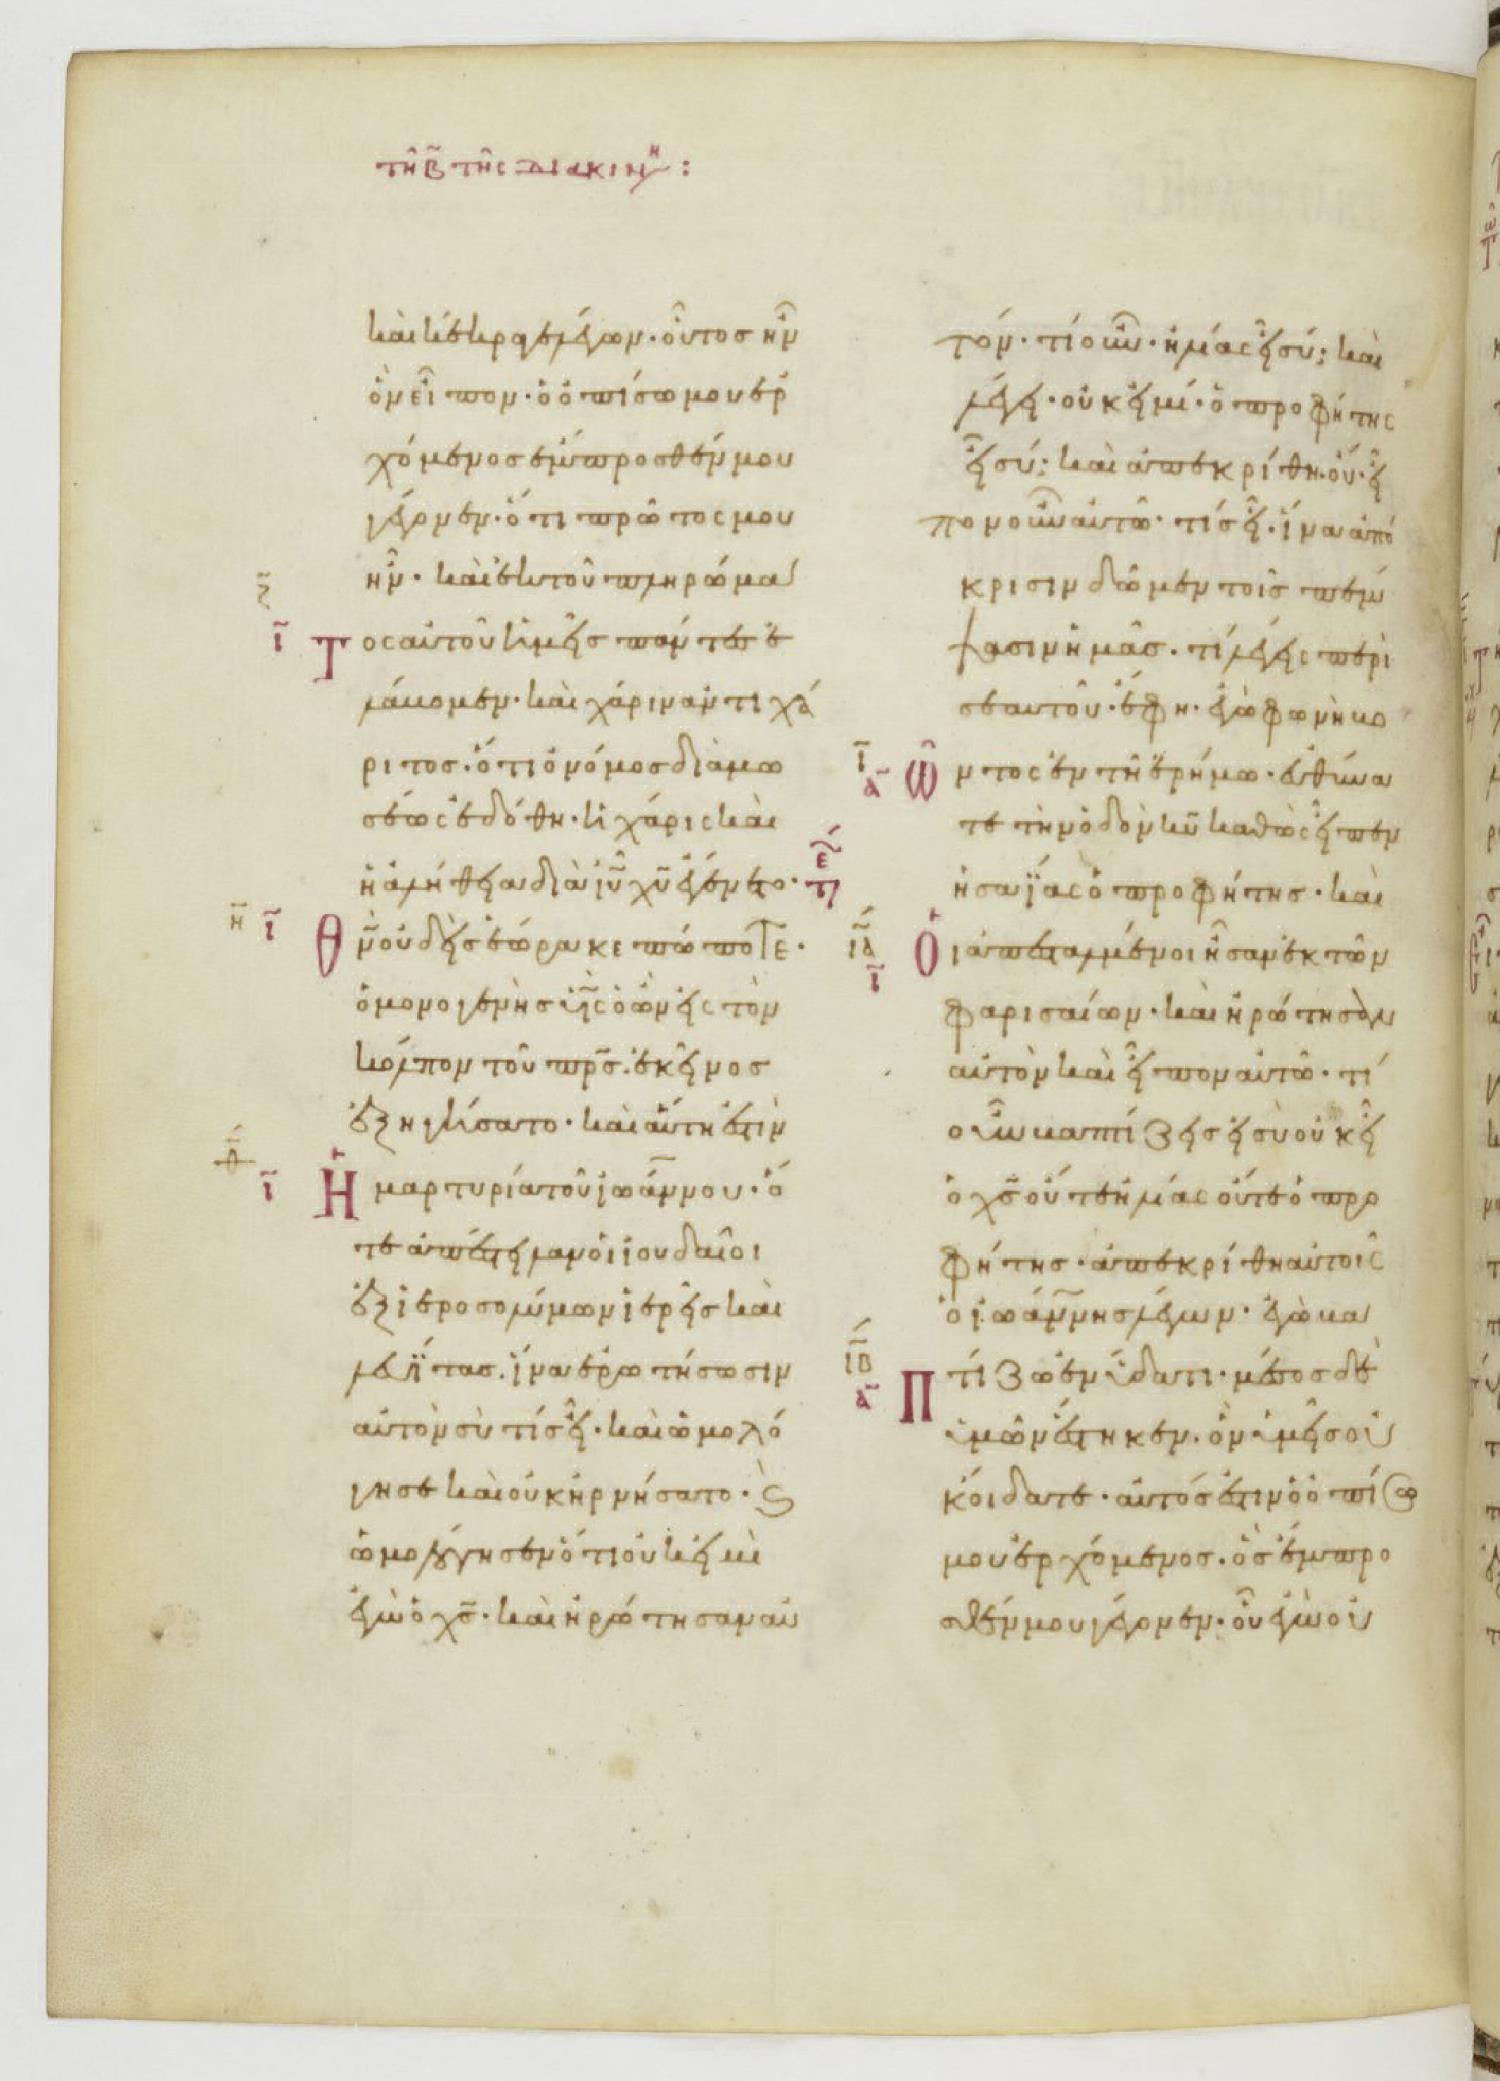 τῆ β τῆς διακιν^η :
καὶ κέκραγε λέγων · οὗτος ἦν
ὃν εἶπον · ὁ ὀπίσω μου ἐρ
χόμενος ἔμπροσθέν μου
γέγονεν · ὅτι πρῶτός μου
ἦν · καὶ ἐκ τοῦ πληρώμα
ζ
ι Τος αὐτοῦ ἡμεῖς πάντες ἐ
λάβομεν · καὶ χάριν ἀντὶ χά
ριτος · ὅτι ὁ νόμος διὰ μω
σέως ἐδόθη · ἡ χάρις καὶ
ἡ ἀλήθεια διὰ ἰυ χυ ἐγένετο ·
η ι Θν οὐδεὶς ἑώρακε πώποτε ·
ὁ μονογενὴς υἱὸς ὁ ὢν εἰς τὸν
κόλπον τοῦ πρς · ἐκεῖνος
ἐξηγήσατο · καὶ αὕτη ἐστὶν
θ
ι Ἡ μαρτυρία τοῦ ἰωάννου · ὅ
τε ἀπέστειλαν οἱ ἰουδαῖοι
ἐξ ἱεροσολύμων ἱερεῖς καὶ
λευΐτας · ἵνα ἐρωτήσωσιν
αὐτὸν σὺ τίς εἶ · καὶ ὡμολό
γησε καὶ οὐκ ἠρνήσατο · ϗ
ὡμολόγησεν ὅτι οὐκ εἰμὶ
ἐγὼ ὁ χς · καὶ ἠρώτησαν αὐ
τόν · τί οὖν · ἠλίας εἶ σύ; καὶ
λέγει · οὐκ εἰμί · ὁ προφήτης
εἶ σύ; καὶ ἀπεκρίθη · οὔ · εἶ
πον οὖν αὐτῶ · τίς εἶ · ἵνα ἀπό
κρισιν δῶμεν τοῖς πέμ
ψασιν ἡμᾶς · τί λέγεις περὶ
σεαυτοῦ · ἔφη · ἐγὼ φωνὴ βο
ι
α Ὠντος ἐν τῆ ἐρήμω · εὐθύνα
τε τὴν ὁδὸν κυ καθὼς εἶπεν
ε
π ἡσαΐας ὁ προφήτης · καὶ
ια
ι Οἱ ἀπεσταλμένοι ἦσαν ἐκ τῶν
φαρισαίων · καὶ ἠρώτησαν
αὐτὸν καὶ εἶπον αὐτῶ · τί
οὖν βαπτίζεις εἰ σὺ οὐκ εἶ
ὁ χς οὔτε ἠλίας οὔτε ὁ προ
φήτης · ἀπεκρίθη αὐτοῖς
ὁ ἰωάννης λέγων · ἐγὼ βα
ιβ
α Πτίζω ἐν ὕδατι · μέσος δὲ
ὑμῶν ἕστηκεν · ὃν ὑμεῖς οὐ
κ οἴδατε · αὐτός ἐστιν ὁ ὀπίσω
μου ἐρχόμενος · ὃς ἔμπρο
σθέν μου γέγονεν · οὗ ἐγὼ οὐ